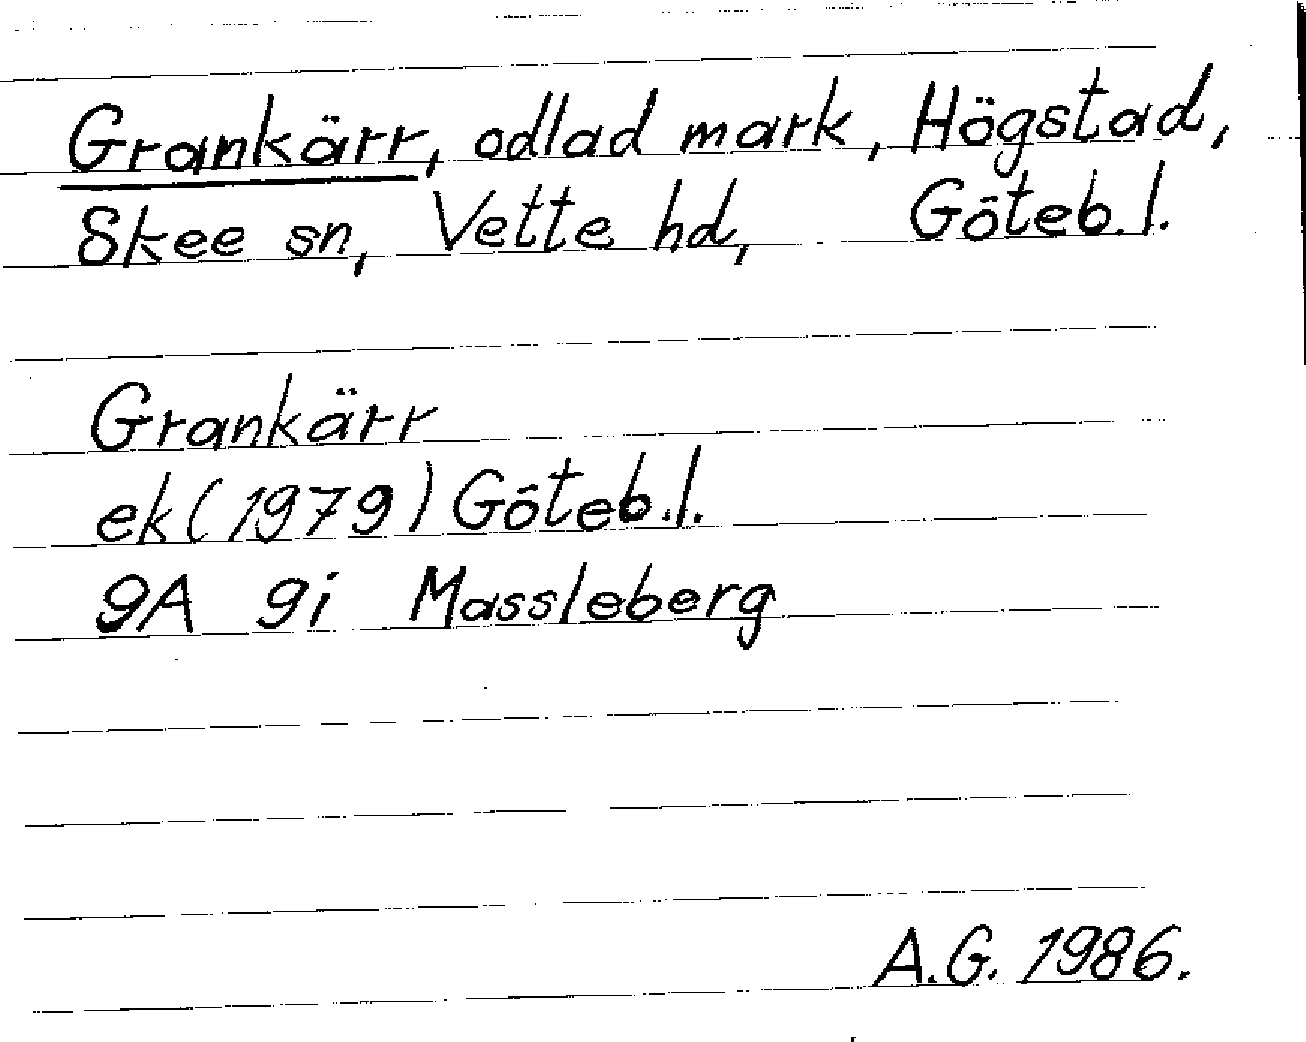 Grankärr, odlad mark, Högstad,
Skee sn, Vette hd, Göteb. l.
Grankärr
ek (1979) Göteb. l.
9A 9i Massleberg
A.G. 1986.